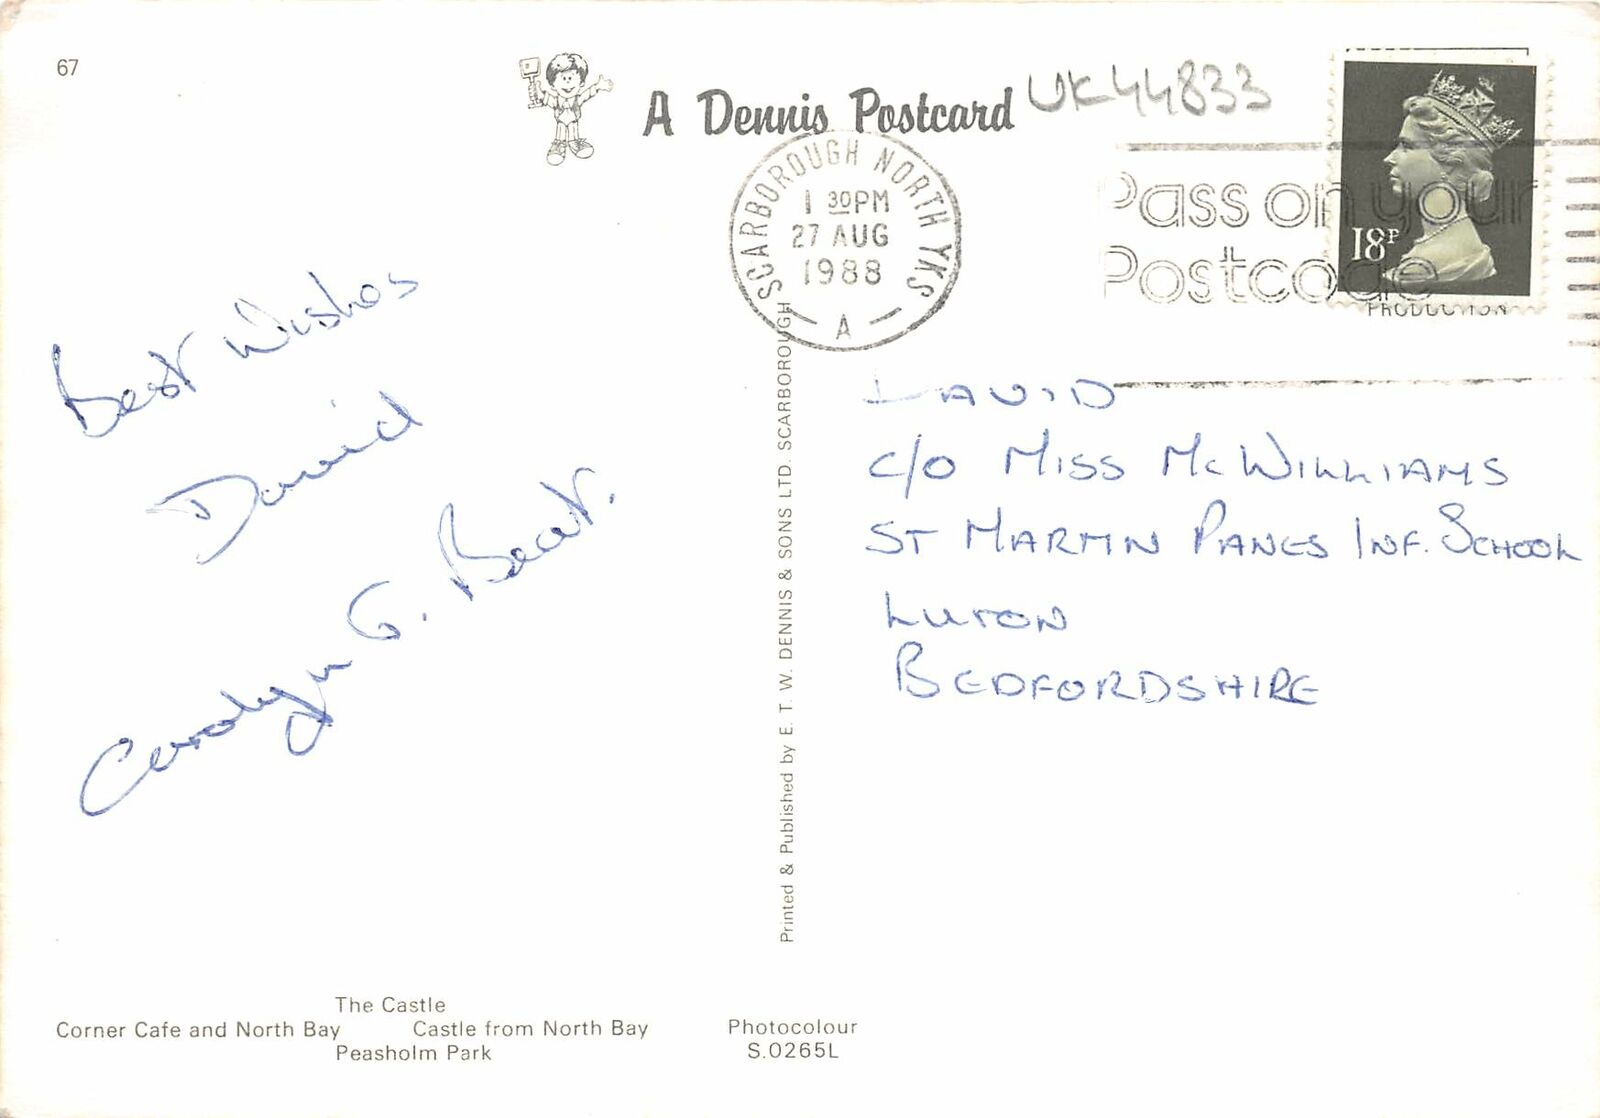 67
A Dennis Postcard
UK44833
SCARBOROUGH NORTH YKS
1 30PM
27 AUG
1988
A
Pass on your
Postcode
18P
Best Wishes
David
Carolyn G. Beat.
DAVID
C/O MISS MCWILLIAMS
ST MARTIN PANCS INF. SCHOOL
LUTON
BEDFORDSHIRE
Printed & Published by E. T. W. DENNIS & SONS LTD. SCARBOROUGH
The Castle
Corner Cafe and North Bay
Castle from North Bay
Peasholm Park
Photocolour
S.0265L